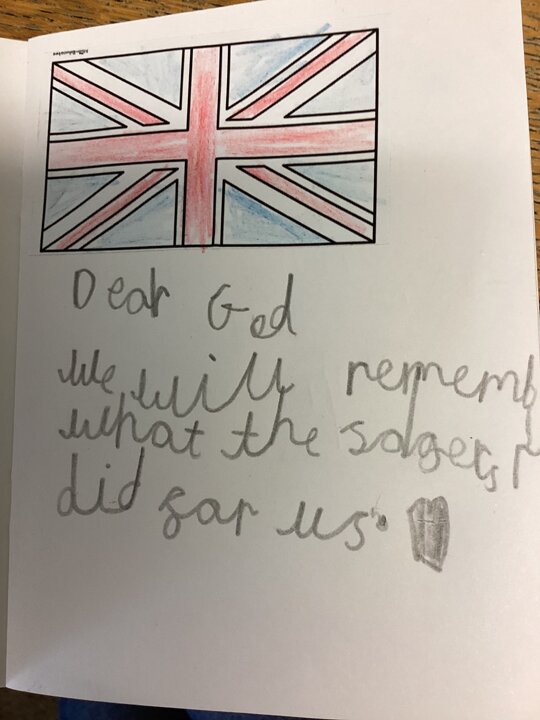 Dear God
we will rememb
what the sogers
did for us.